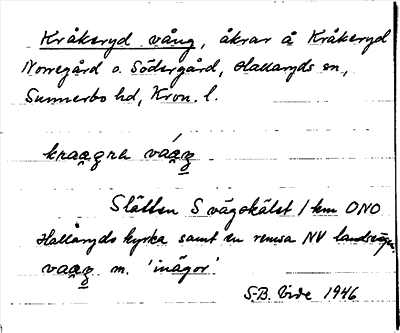 Kråkeryd vång, åkrar å Kråkeryd
Norregård o. Södergård, Hallaryds sn,
Sunnerbo hd, Kron. l.
Slätten S vägskälet 1 km ONO
Hallaryds kyrka samt en remsa NV landsvägen.
m. 'inägor'.
S-B. Vide 1946